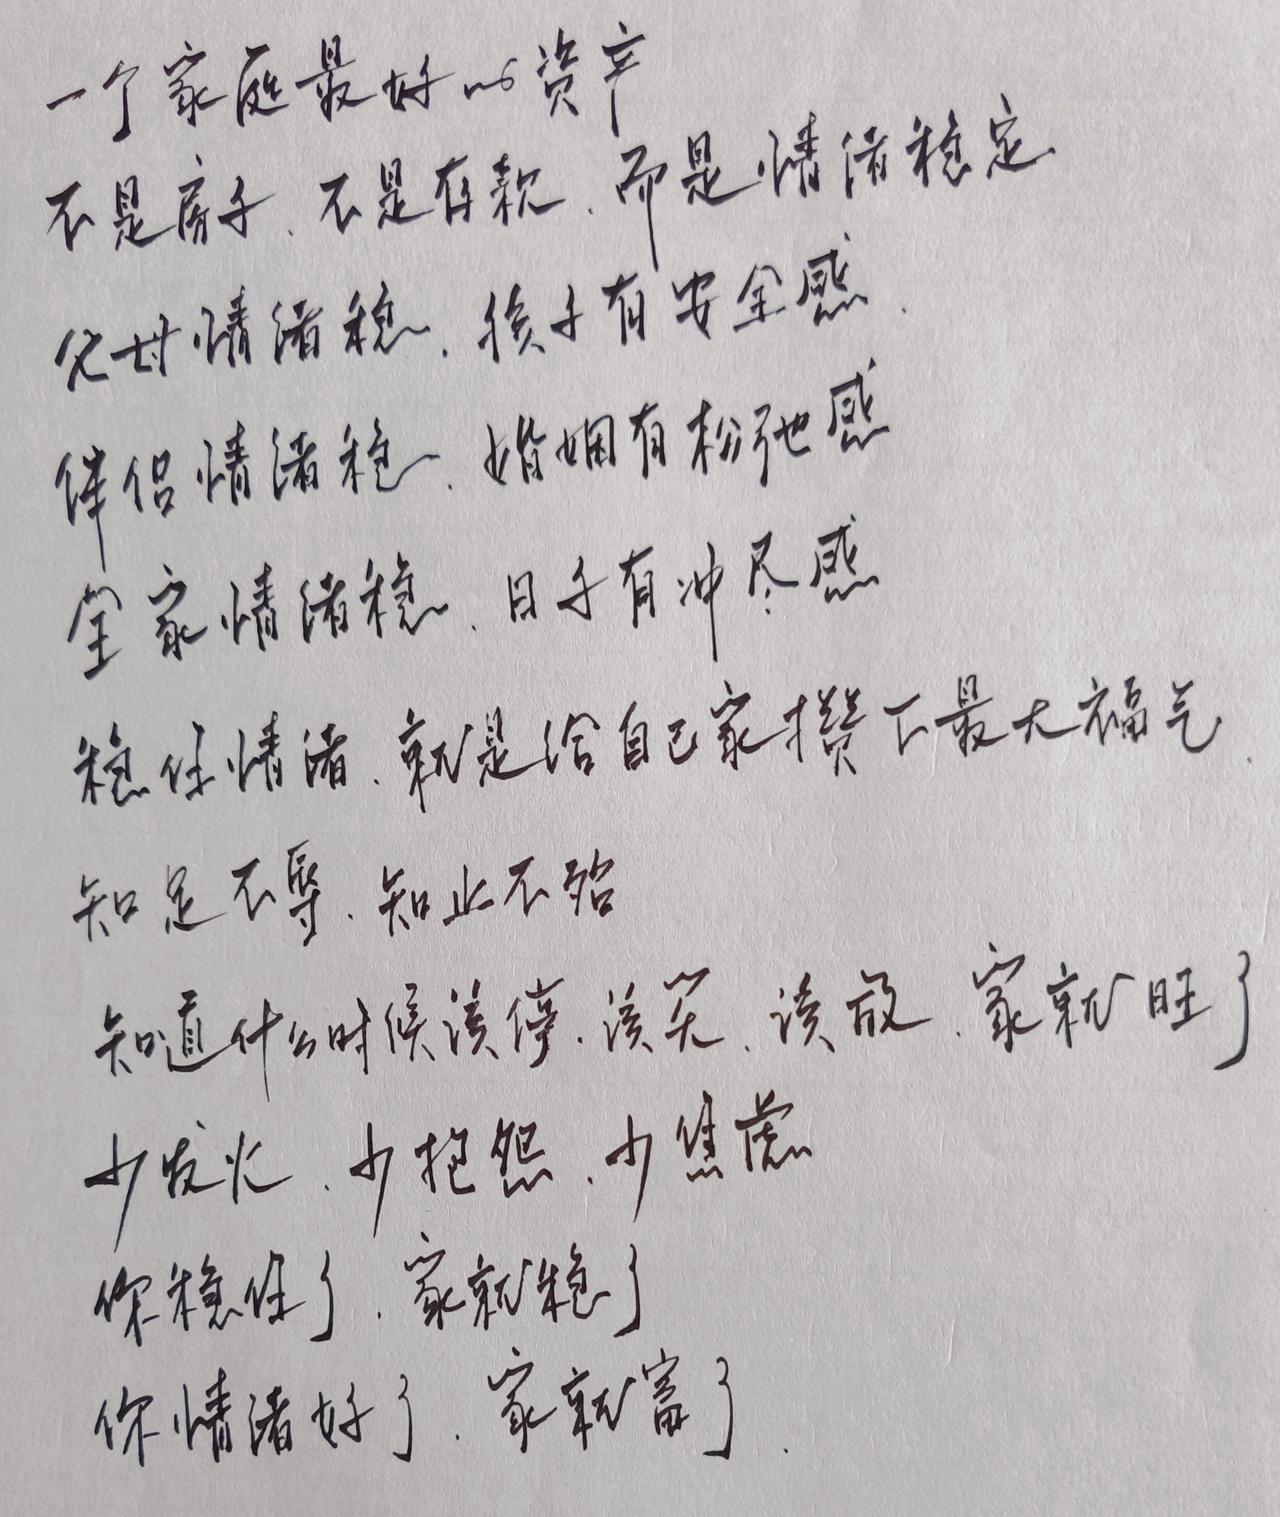 一个家庭最好的资产
不是房子、不是存款、而是情绪稳定
父母情绪稳、孩子有安全感、
伴侣情绪稳、婚姻有松弛感
全家情绪稳、日子有冲尽感
稳住情绪、就是给自己家攒下最大福气、
知足不辱、知止不殆
知道什么时候该停、该笑、该放、家就旺了
少发火、少抱怨、少焦虑
你稳住了、家就稳了
你情绪好了、家就富了、